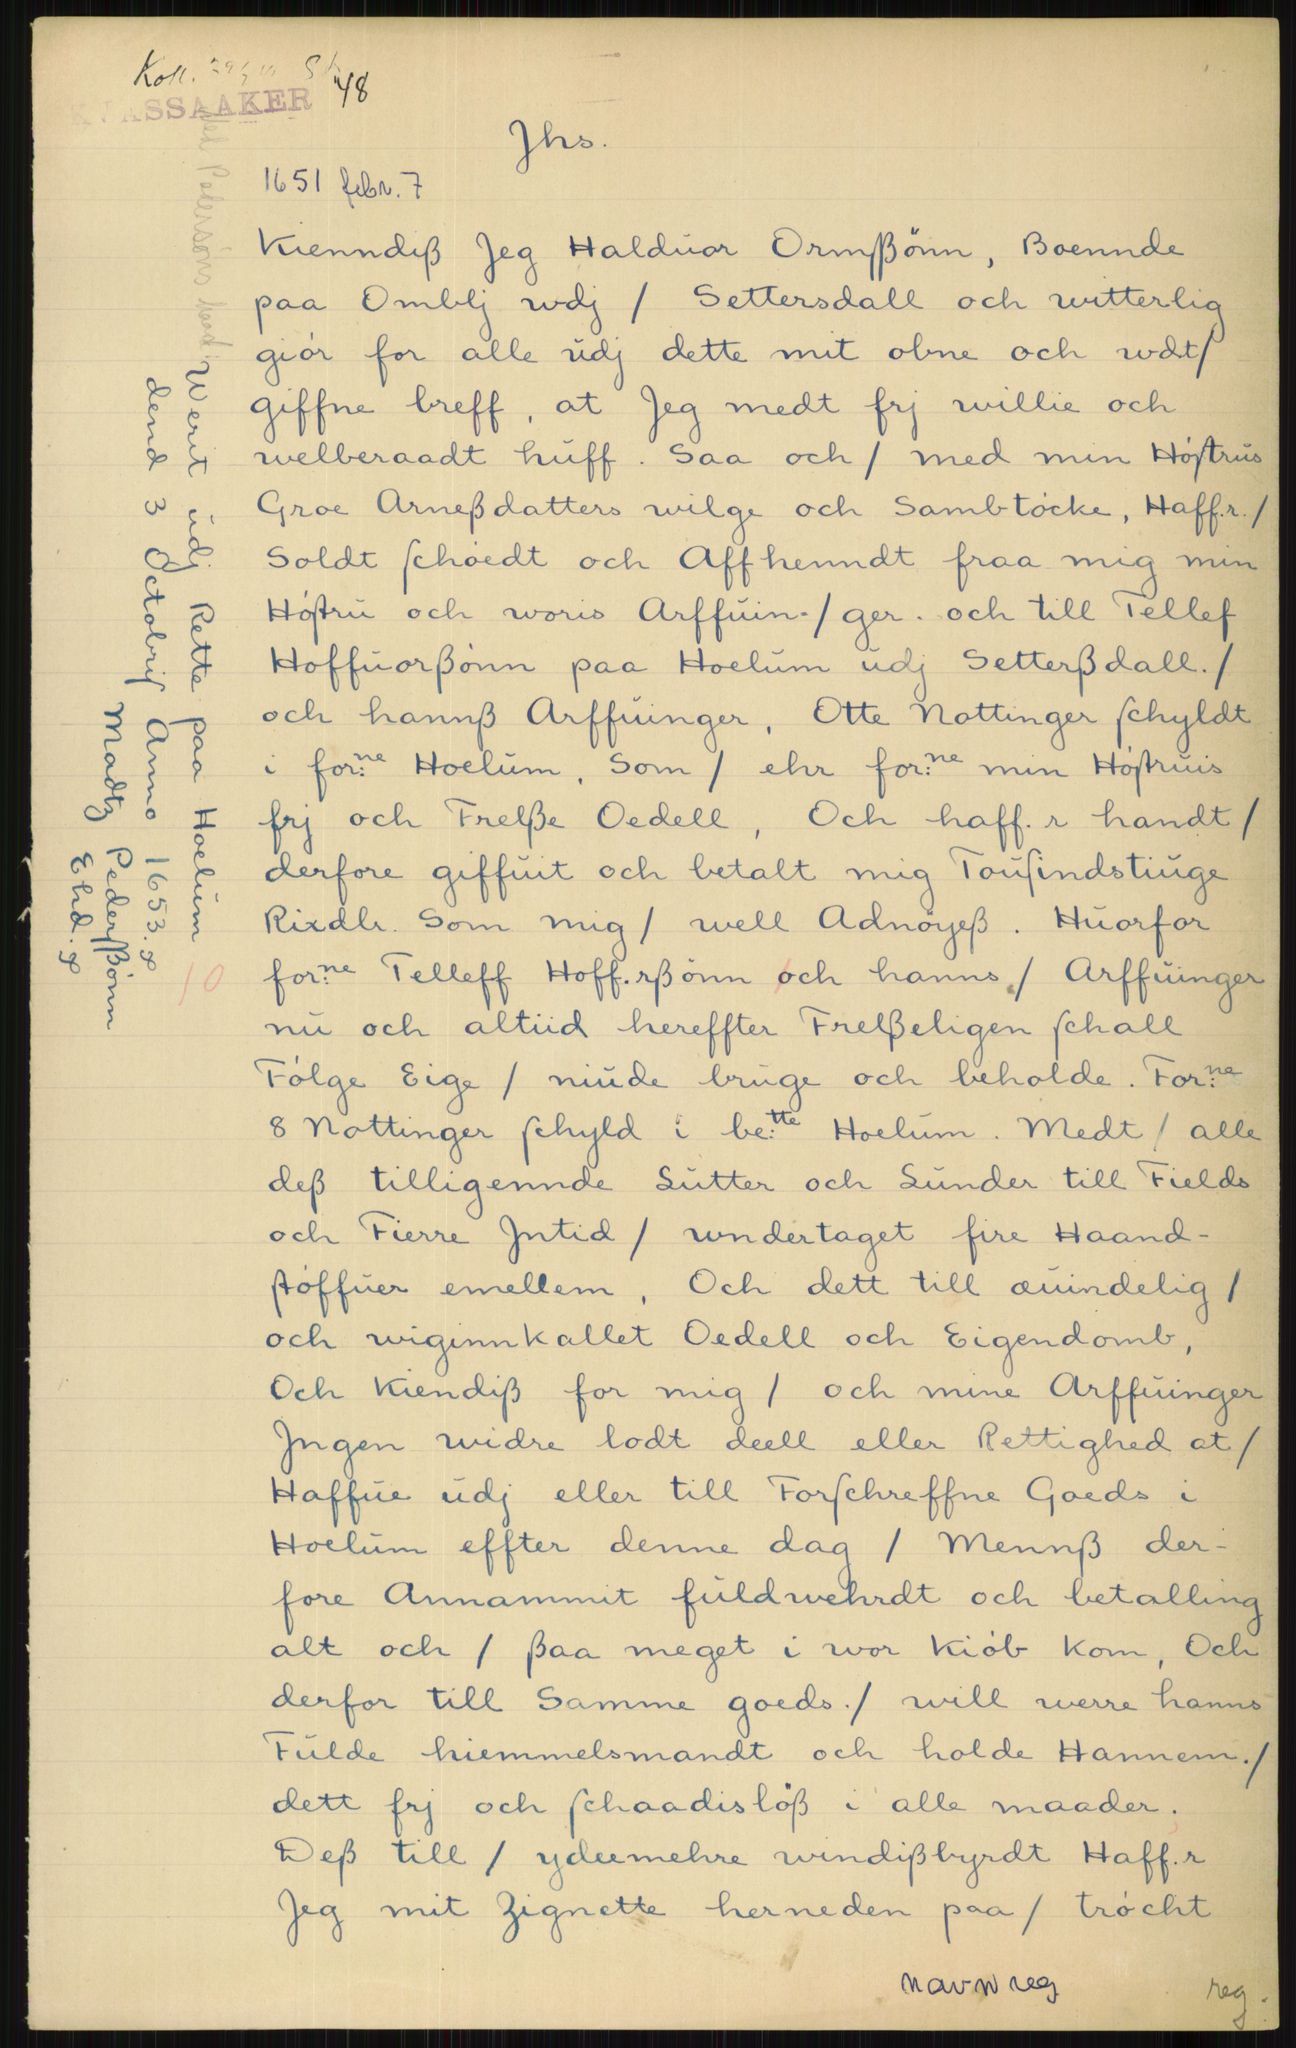 Koll.
48
KVASSAAKER
Jhs.
1651 febr. 7
Kienndiß Jeg Halduor Ormßönn, Boennde
paa Omblj wdj / Settersdall och witterlig
giór for alle üdj dette mit obne och wdt/
giffne breff, at Jeg medt frj willie och
welberaadt hüff. Saa och / med min Hóstrüs
Groe Arneßdatters wilge och Sambtócke, Haff.r. /
Soldt schóedt och Affhenndt fraa mig min
Hóstrü och woris Arffüin-/ger. och till Tellef
Hoffüorßónn paa Hoelüm üdj Setterßdall. /
och hannß Arffüinger, Otte Nottinger schyldt
i for:ne Hoelüm, Som / ehr for:ne min Hóstruis
frj och Frelße Oedell, Och haff.r handt /
derfore giffüit och betalt mig Toüsindstiüge
Rixdlr. Som mig / well Adnöyeß. Hüorfor
for:ne Telleff Hoff.rßönn och hanns / Arffüinger
nü och altiid hereffter Frelßeligen schall
Fólge Eige / niüde brüge och beholde. For:ne
8 Nottinger schyld i be:tte Hoelüm. Medt / alle
deß tilligennde Lutter och Lünder till Fields
och Fierre Jntid / wndertaget fire Haand-
stóffüer emellem, Och dett till æüindelig /
och wiginnkallet Oedell och Eigendomb,
Och Kiendiß for mig / och mine Arffüinger
Jngen widre lodt deell eller Rettighed at /
Haffüe üdj eller till Forschreffne Goeds i
Hoelüm effter denne dag / Mennß der-
fore Annammit füldwehrdt och betalling
alt och / ßaa meget i wor Kiób Kom, Och
derfor till Samme goeds. / will werre hanns
Fülde hiemmelsmandt och holde Hannem. /
dett frj och schaadislöß i alle maader.
Deß till / ydeemehre windißbyrdt Haff.r
Jeg mit Zignette herneden paa / trócht
Werit üdj Rette paa Hoelüm
dend 3 Octobris Anno 1653.
Madtz Pederßönn
Ehd.
10
navn reg
reg.